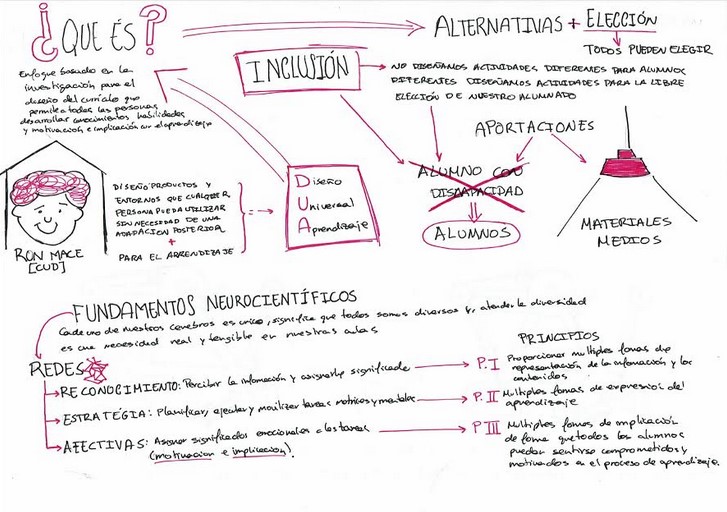 ¿QUE ÉS?
ALTERNATIVAS + ELECCIÓN
TODOS PUEDEN ELEGIR
Enfoque basado en la
investigación para el
diseño del currículo que
permite a todas las personas
desarrollar conocimientos habilidades
y motivación e implicación con el aprendizaje
INCLUSIÓN
NO DISEÑAMOS ACTIVIDADES DIFERENTES PARA ALUMNOS
DIFERENTES DISEÑAMOS ACTIVIDADES PARA LA LIBRE
ELECCIÓN DE NUESTRO ALUMNADO
APORTACIONES
ALUMNO CON
DISCAPACIDAD
ALUMNOS
MATERIALES
MEDIOS
RON MACE
[CUD]
DISEÑO PRODUCTOS Y
ENTORNOS QUE CUALQUIER
PERSONA PUEDA UTILIZAR
SIN NECESIDAD DE UNA
ADAPACION POSTERIOR
+
PARA EL APRENDIZAJE
Diseño
Universal
Aprendizaje
FUNDAMENTOS NEUROCIENTÍFICOS
Cada uno de nuestros cerebros es único, significa que todos somos diversos y, atender la diversidad
es una necesidad real y tangible en nuestras aulas
REDES
RECONOCIMIENTO: Percibir la información y asignarle significado
ESTRATEGIA: Planificar, ejecutar y movilizar tareas motrices y mentales
AFECTIVAS: Asignar significados emocionales a las tareas
(motivacion e implicacion).
PRINCIPIOS
P. I Proporcionar multiples formas de
representación de la información y los
contenidos
P. II Multiples formas de expresión del
aprendizaje
P. III Multiples formas de implicación
de forma que todos los alumnos
puedan sentirse comprometidos y
motivados en el proceso de aprendizaje.